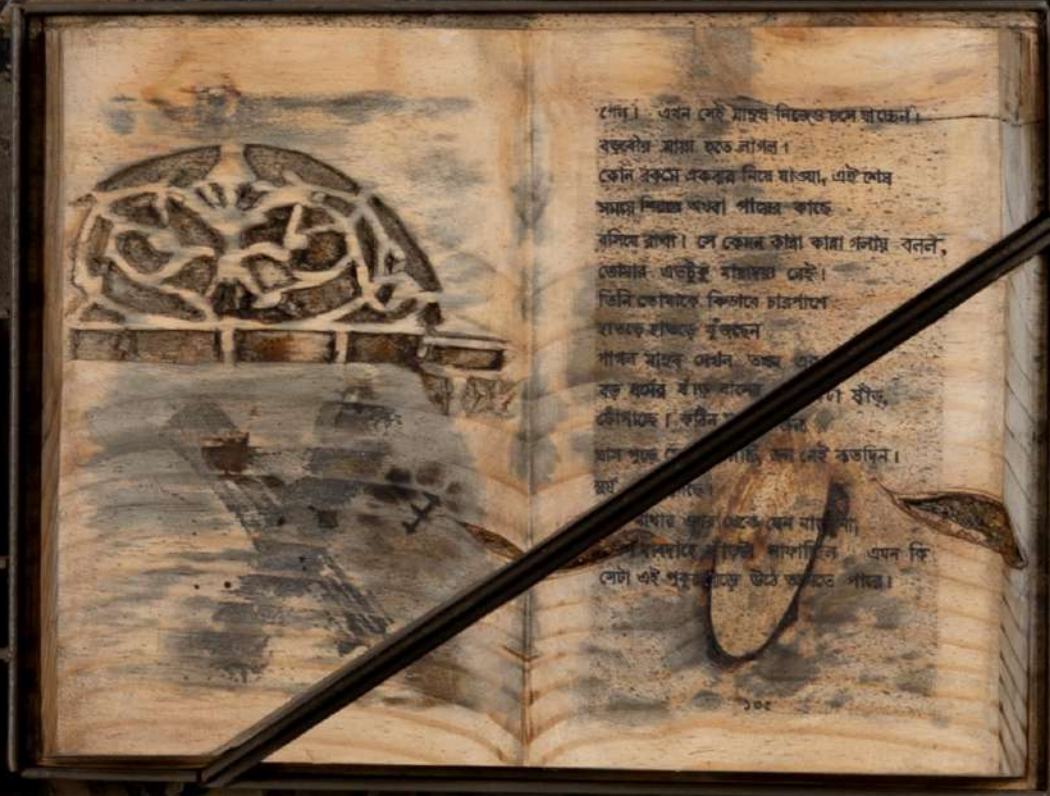 গেল। এখন সেই মানুষ নিজেও চলে যাচ্ছেন।
বড়বৌর মায়া হতে লাগল।
কোন রকমে একবার নিয়ে যাওয়া, এই শেষ
সময়ে শিয়রে অথবা পায়ের কাছে
বসিয়ে রাখা। সে কেমন কান্না কান্না গলায় বলল,
তোমার এতটুকু মায়াদয়া নেই।
তিনি তোমাকে কিভাবে চারপাশে
হাতড়ে হাতড়ে খুঁজছেন
পাগল মানুষ দেখল তখন
বড় ধর্মের ষাঁড় ষাঁড়,
ফোঁপাচ্ছে। কঠিন
ঘাস পুড়ে জল নেই কতদিন।
সূর্য
মাথার ওপর থেকে যেন
লাফাচ্ছিল এমন কি
সেটা এই পুকুরপাড়ে উঠে আসতে পারে।
১০৫